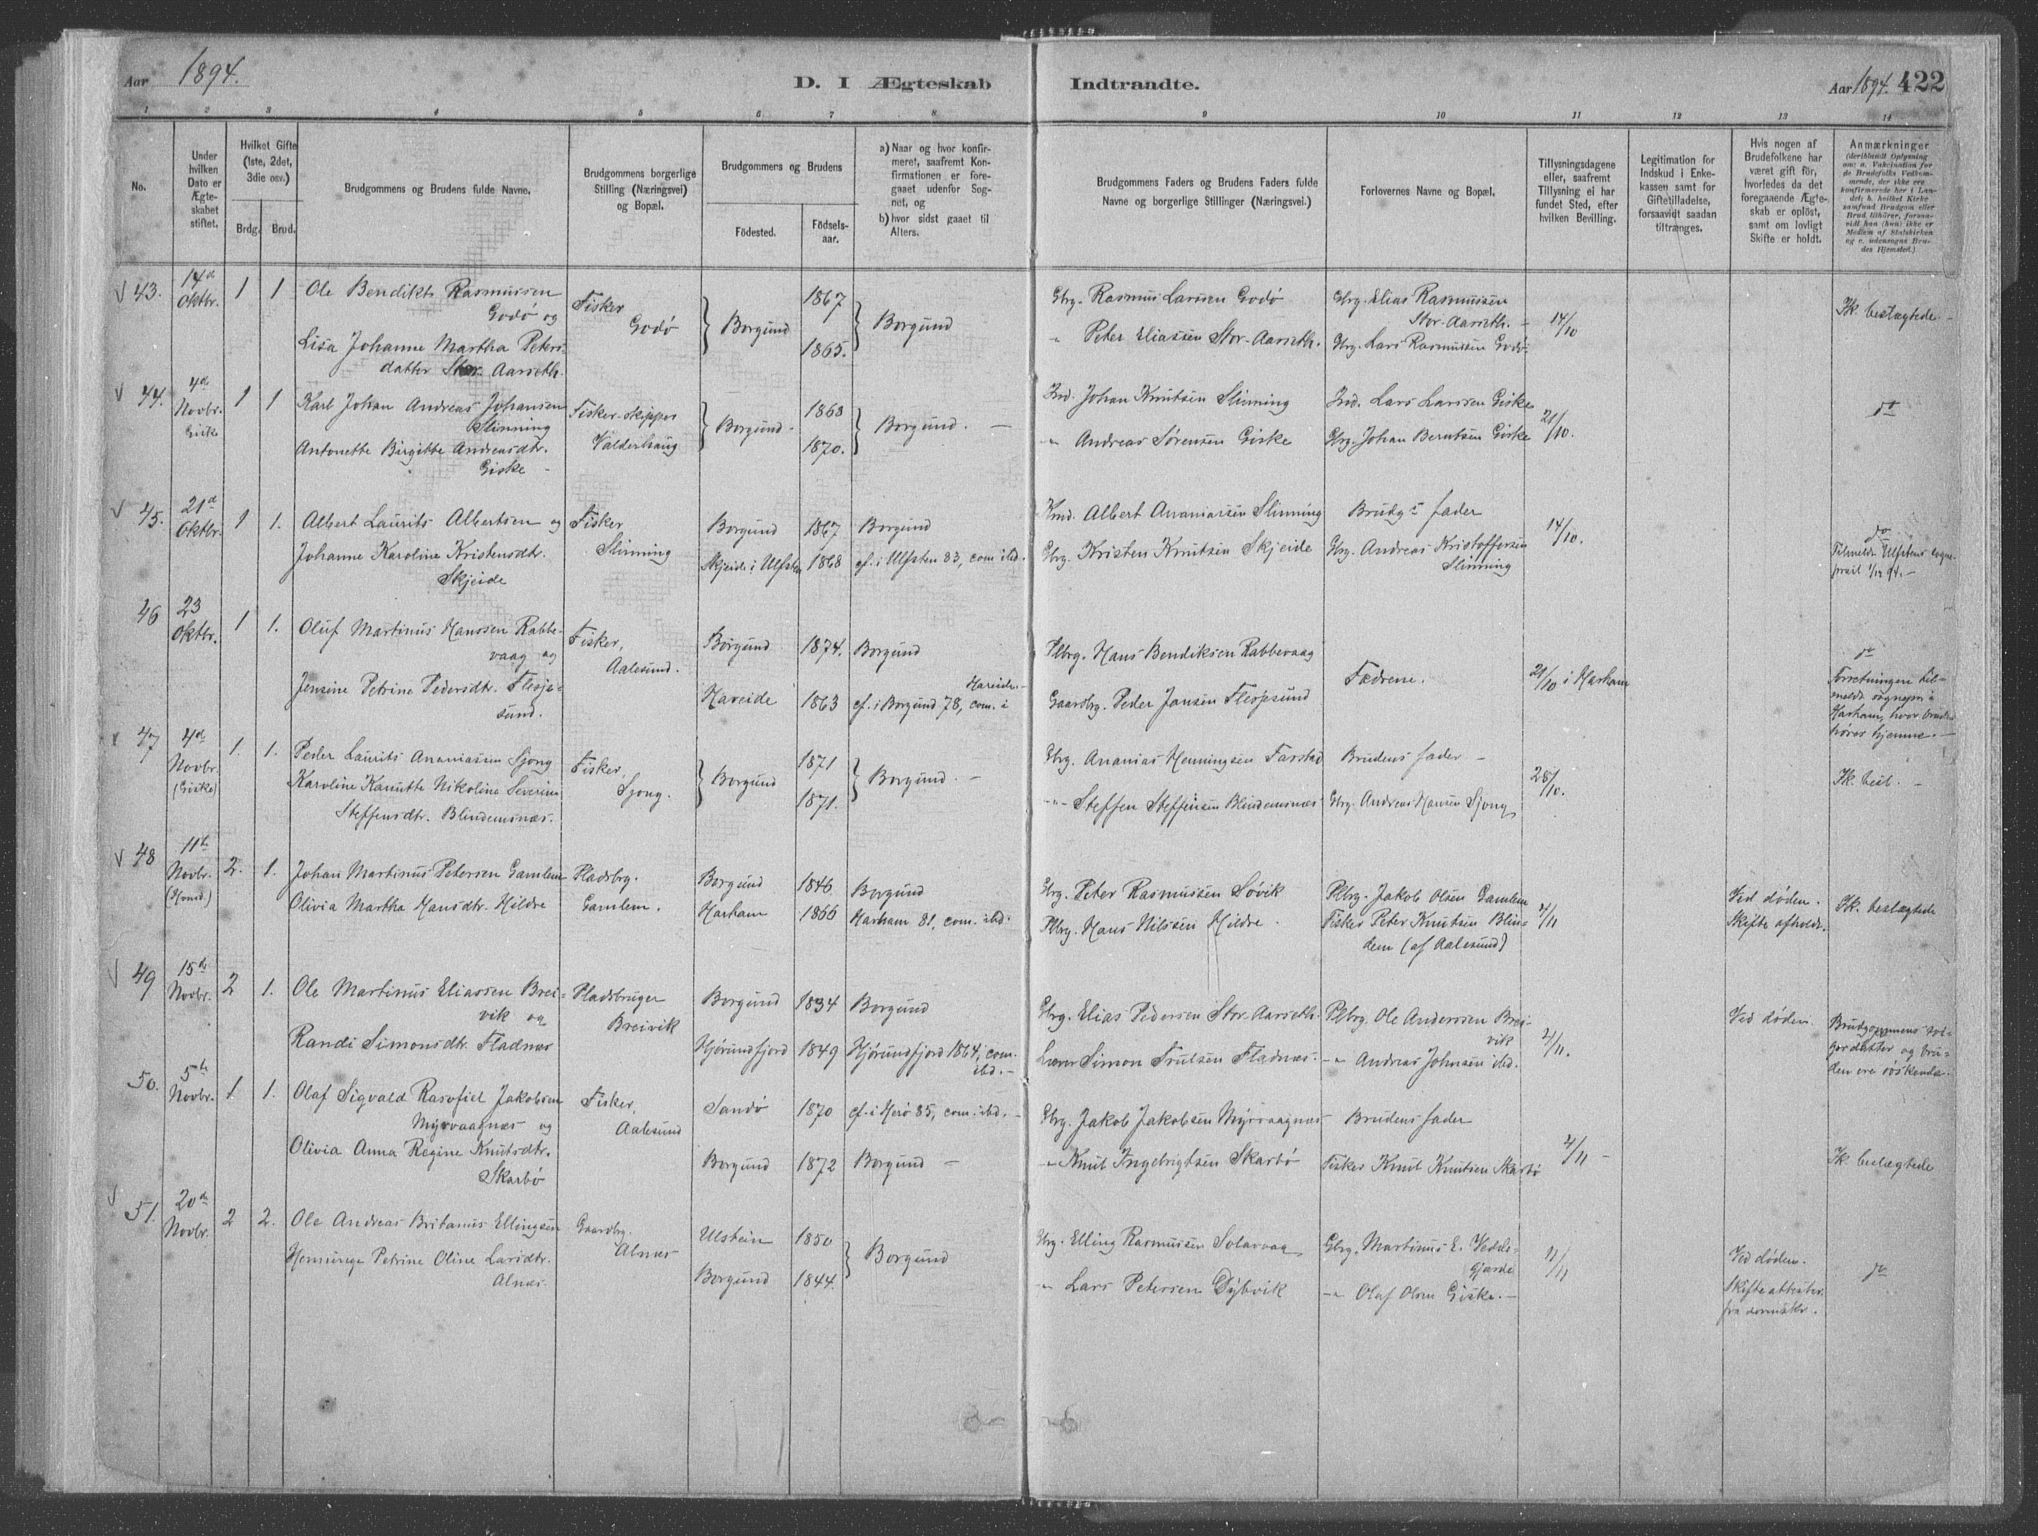 Aar 1894.
D. I Ægteskab Indtraadte.
Aar 1894. 422
1 2 3 4 5 6 7 8 9 10 11 12 13 14
No.
Under hvilken Dato er Ægteskabet stiftet.
Hvilket Gifte (1ste, 2det, 3die osv.)
Brdg. Brud.
Brudgommens og Brudens fulde Navne.
Brudgommens borgerlige Stilling (Næringsvei) og Bopæl.
Brudgommens og Brudens
Födested.
Födselsaar.
a) Naar og hvor konfirmeret, saafremt Konfirmationen er foregaaet udenfor Sognet, og
b) hvor sidst gaaet til Alters.
Brudgommens Faders og Brudens Faders fulde Navne og borgerlige Stillinger (Næringsvei.)
Forlovernes Navne og Bopæl.
Tillysningsdagene eller, saafremt Tillysning ei har fundet Sted, efter hvilken Bevilling.
Legitimation for Indskud i Enkekassen samt for Giftetilladelse, forsaavidt saadan tiltrænges.
Hvis nogen af Brudefolkene har været gift för, hvorledes da det foregaaende Ægteskab er oplöst, samt om lovligt Skifte er holdt.
Anmærkninger
43. 14d Oktbr. 1 1 Ole Bendikts Rasmussen Godø og Fisker Godø } Borgund 1867 } Borgund Gbrg. Rasmus Larsen Godø Gbrg. Elias Rasmussen Stor-Aarseth. 14/10 Ik. beslægtede
Lisa Johanne Martha Petersdatter Stor-Aarseth. 1865. " Peter Eliassen Stor-Aarseth. Gbrg. Lars Rasmussen Godø.
44. 4d Novbr. Giske 1 1 Karl Johan Andreas Johansen Slinning Fisker-skipper Valderhaug } Borgund. 1863 } Borgund. Ind. Johan Knutsen Slinning Ind. Lars Larssen Giske 21/10. do
Antonette Birgitte Andreasdtr. Giske 1870. " Andreas Sørensen Giske Gbrg. Johan Berntsen Giske
45. 21d Oktbr. 1 1. Albert Laurits Albertsen og Fisker Slinning Borgund 1867 Borgund Albert Ananiassen Slinning Brudgs fader 14/10. do
Johanne Karoline Kristensdtr. Skjeide Skjeide i Ulfsten 1868 cf. i Ulfsten 83, com. ibd. Gbrg. Kristen Knutsen Skjeide Gbrg. Andreas Kristoffersen Slinning
46 23 Oktbr. 1 1. Oluf Martinus Hanssen Rabbevaag og Fisker, Aalesund. Borgund 1874. Borgund Plbrg. Hans Bendiksen Rabbevaag Fædrene. 21/10 i Harham do
Jensine Petrine Pedersdtr. Flesjesund. Hareide 1863 cf. i Borgund 78, com. i Hareide. Gaardbg. Peder Jansen Flesjesund Forretningen tilmeldt sognepr. i Harham, hvor bruden høres hjemme.
47 4d Novbr. (Giske) 1. 1. Peder Laurits Ananiassen Sjong Fisker, Sjong. } Borgund 1871 } Borgund. Gbrg. Ananias Henningsen Farstad Brudens fader 28/10. Ik. besl.
Karoline Knutte Nikoline Severine Steffensdtr. Blindemsnæs. 1871. Steffen Steffensen Blindemsnæs Gbrg. Andreas Hansen Sjong
48 11te Novbr. 2. 1. Johan Martinus Petersen Gamlem Pladsbrg. Gamlem. Borgund 1846 Borgund Gbrg. Peter Rasmussen Søvik Plbrg. Jakob Olsen Gamlem 4/11 Ved døden. Skifte afholdt. Ik. beslægtede
Olivia Martha Hansdtr. Hildre Harham 1866 Harham 81, com. ibd. Plbrg. Hans Nilssen Hildre. Fisker Peter Knutsen Blindem (af Aalesund)
49 15de Novbr. 2 1. Ole Martinus Eliassen Breivik og Pladsbruger Breivik Borgund 1834 Borgund Gbrg. Elias Pedersen Stor-Aarseth Plbrg. Ole Anderssen Breivik 4/11. Ved døden
Randi Simonsdtr. Fladnæs Hjørundfjord 1849 Hjørundfjord 1864, com. ibd. Simon Trulsen Fladnæs. " Andreas Johnsen ibd. og bruden ere søskende.
50. 5te Novbr. 1 1. Olaf Sigvald Jakobsen Myrvaagnæs og Fisker, Aalesund Sandø 1870 cf. i Herø 85, com. ibd. Gbrg. Jakob Jakobsen Myrvaagnæs Brudens fader 4/11 Ik. beslægtede
Olivia Anna Regine Knutsdtr. Skarbø Borgund 1872 Borgund " Knut Ingebrigtsen Skarbø Fisker Knut Knutsen Skarbø
51. 20de Novbr. 2 2. Ole Andreas Britanus Ellingsen Gaardbrg. Alnæs Ulstein 1850 } Borgund Gbrg. Elling Rasmussen Gbrg. Martinus E. Veddegjærde 11/11 Ved døden. Skifteattester fra do
Petrine Oline Larsdtr. Alnæs. Borgund 1844. " Lars Petersen Dybvik " Olaf Olsen Giske.